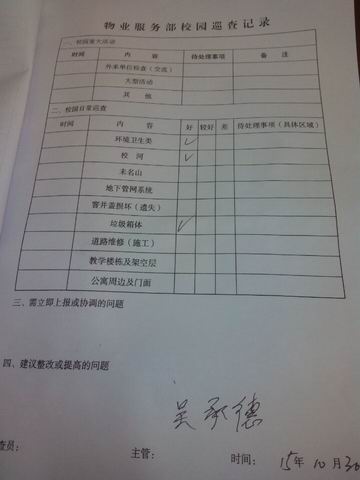 物业服务部校园巡查记录
一、校园重大活动
时间 内容 待处理事项 备注
外来单位检查（交流）
大型活动
其他
二、校园日常巡查
时间 内容 好 较好 差 待处理事项（具体区域）
环境卫生类 ✓
校河 ✓
未名山
地下管网系统
窨井盖损坏（遗失）
垃圾箱体 ✓
道路维修（施工）
教学楼栋及架空层
公寓周边及门面
三、需立即上报或协调的问题
四、建议整改或提高的问题
吴承德
查员： 主管： 时间： 15年10月30